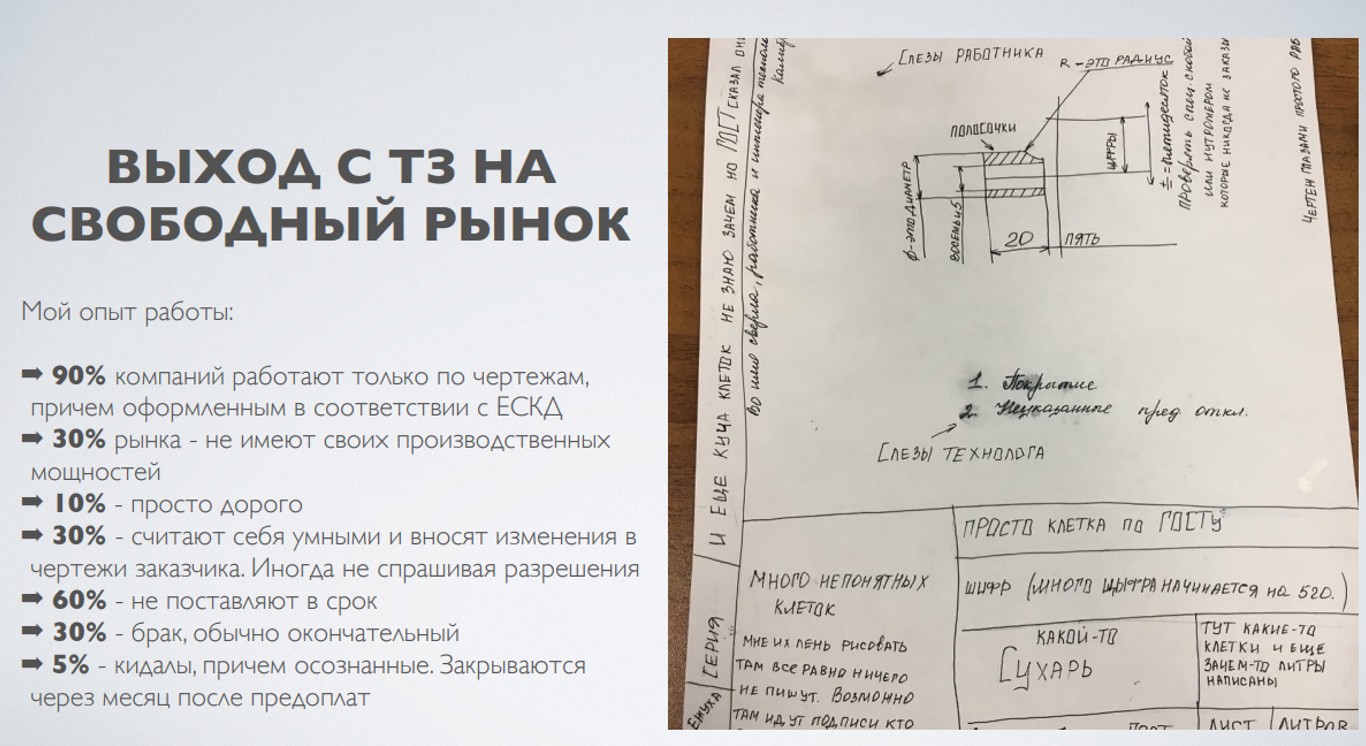 ВЫХОД С ТЗ НА
СВОБОДНЫЙ РЫНОК
Мой опыт работы:
➡ 90% компаний работают только по чертежам,
причем оформленным в соответствии с ЕСКД
➡ 30% рынка - не имеют своих производственных
мощностей
➡ 10% - просто дорого
➡ 30% - считают себя умными и вносят изменения в
чертежи заказчика. Иногда не спрашивая разрешения
➡ 60% - не поставляют в срок
➡ 30% - брак, обычно окончательный
➡ 5% - кидалы, причем осознанные. Закрываются
через месяц после предоплат
СЛЕЗЫ РАБОТНИКА
R - ЭТО РАДИУС
ПОЛОСОЧКИ
ЦИФРЫ
ф-ЭТО ДИАМЕТР
ВОСЕМЬ И 5
20
ПЯТЬ
± = Пятидесяток
ПРОВЕРЯТЬ СПЕЦ. СКОБОЙ
ИЛИ НУТРОМЕРОМ
КОТОРЫЕ НИКОГДА НЕ
ЧЕРТЕЖ ГЛАЗАМИ ПРОСТОГО РАБ
И ЕЩЕ КУЧА КЛЕТОК НЕ ЗНАЮ ЗАЧЕМ НО ГОСТ СКАЗАЛ
Во имя сверла, работника и инженера
1. Покрытие
2. Неуказанные пред откл.
СЛЕЗЫ ТЕХНОЛОГА
ПРОСТО КЛЕТКА ПО ГОСТУ
МНОГО НЕПОНЯТНЫХ
КЛЕТОК
ШИФР (МНОГО ЦЫФРА НАЧИНАЕТСЯ НА 520.)
МНЕ ИХ ЛЕНЬ РИСОВАТЬ
ТАМ ВСЕ РАВНО НИЧЕГО
НЕ ПИШУТ. ВОЗМОЖНО
ТАМ ИДУТ ПОДПИСИ КТО
КАКОЙ-ТО
СУХАРЬ
ТУТ КАКИЕ-ТО
КЛЕТКИ И ЕЩЕ
ЗАЧЕМ-ТО ЛИТРЫ
НАПИСАНЫ
СЕРИЯ
ЛИСТ
ЛИТРОВ